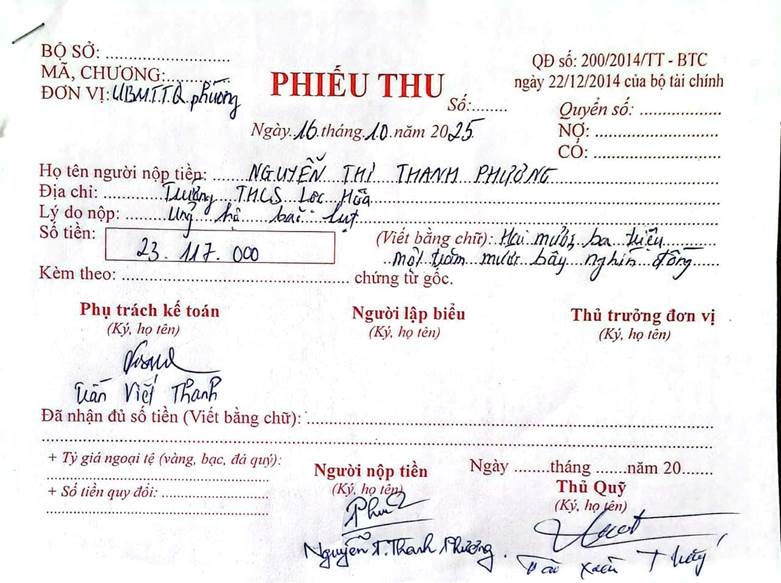 BỘ SỞ: ........................
MÃ, CHƯƠNG:............
ĐƠN VỊ: UBMTTQ phường
PHIẾU THU
Số:........
QĐ số: 200/2014/TT - BTC
ngày 22/12/2014 của bộ tài chính
Quyển số: ..................
NỢ: ...........................
CÓ: ...........................
Ngày 16 tháng 10 năm 2025
Họ tên người nộp tiền: NGUYỄN THỊ THANH PHƯƠNG
Địa chỉ: Trường THCS Lộc Hòa
Lý do nộp: Ủng hộ bão lụt
Số tiền: 23.117.000
(Viết bằng chữ): Hai mươi ba triệu
một trăm mười bảy nghìn đồng
Kèm theo: ........................................ chứng từ gốc.
Phụ trách kế toán
(Ký, họ tên)
Người lập biểu
(Ký, họ tên)
Thủ trưởng đơn vị
(Ký, họ tên)
Trần Viết Thanh
Đã nhận đủ số tiền (Viết bằng chữ): ........................................
+ Tỷ giá ngoại tệ (vàng, bạc, đá quý):
+ Số tiền quy đổi: ........................
Người nộp tiền
(Ký, họ tên)
Nguyễn T. Thanh Phương.
Ngày ........tháng ........năm 20.......
Thủ Quỹ
(Ký, họ tên)
Xuân